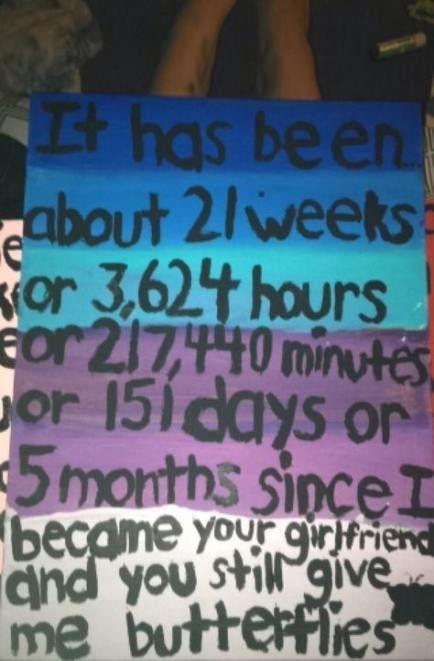 It has been...
about 21 weeks
or 3,624 hours
or 217,440 minutes
or 151 days or
5 months since I
became your girlfriend
and you still give
me butterflies